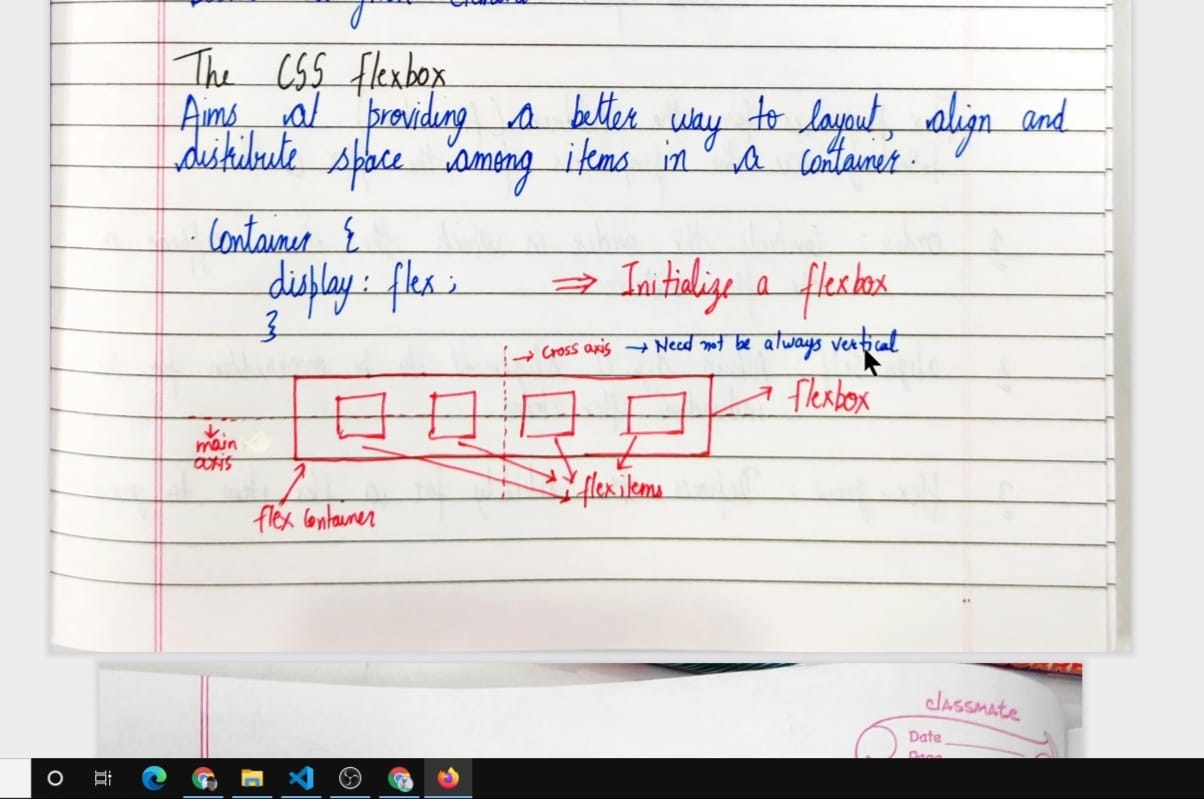 The CSS flexbox
Aims at providing a better way to layout, align and
distribute space among items in a container.
. Container {
display: flex;    ⇒ Initialize a flexbox
}
→ Cross axis → Need not be always vertical
→ flexbox
main
axis
flex items
flex Container
classmate
Date